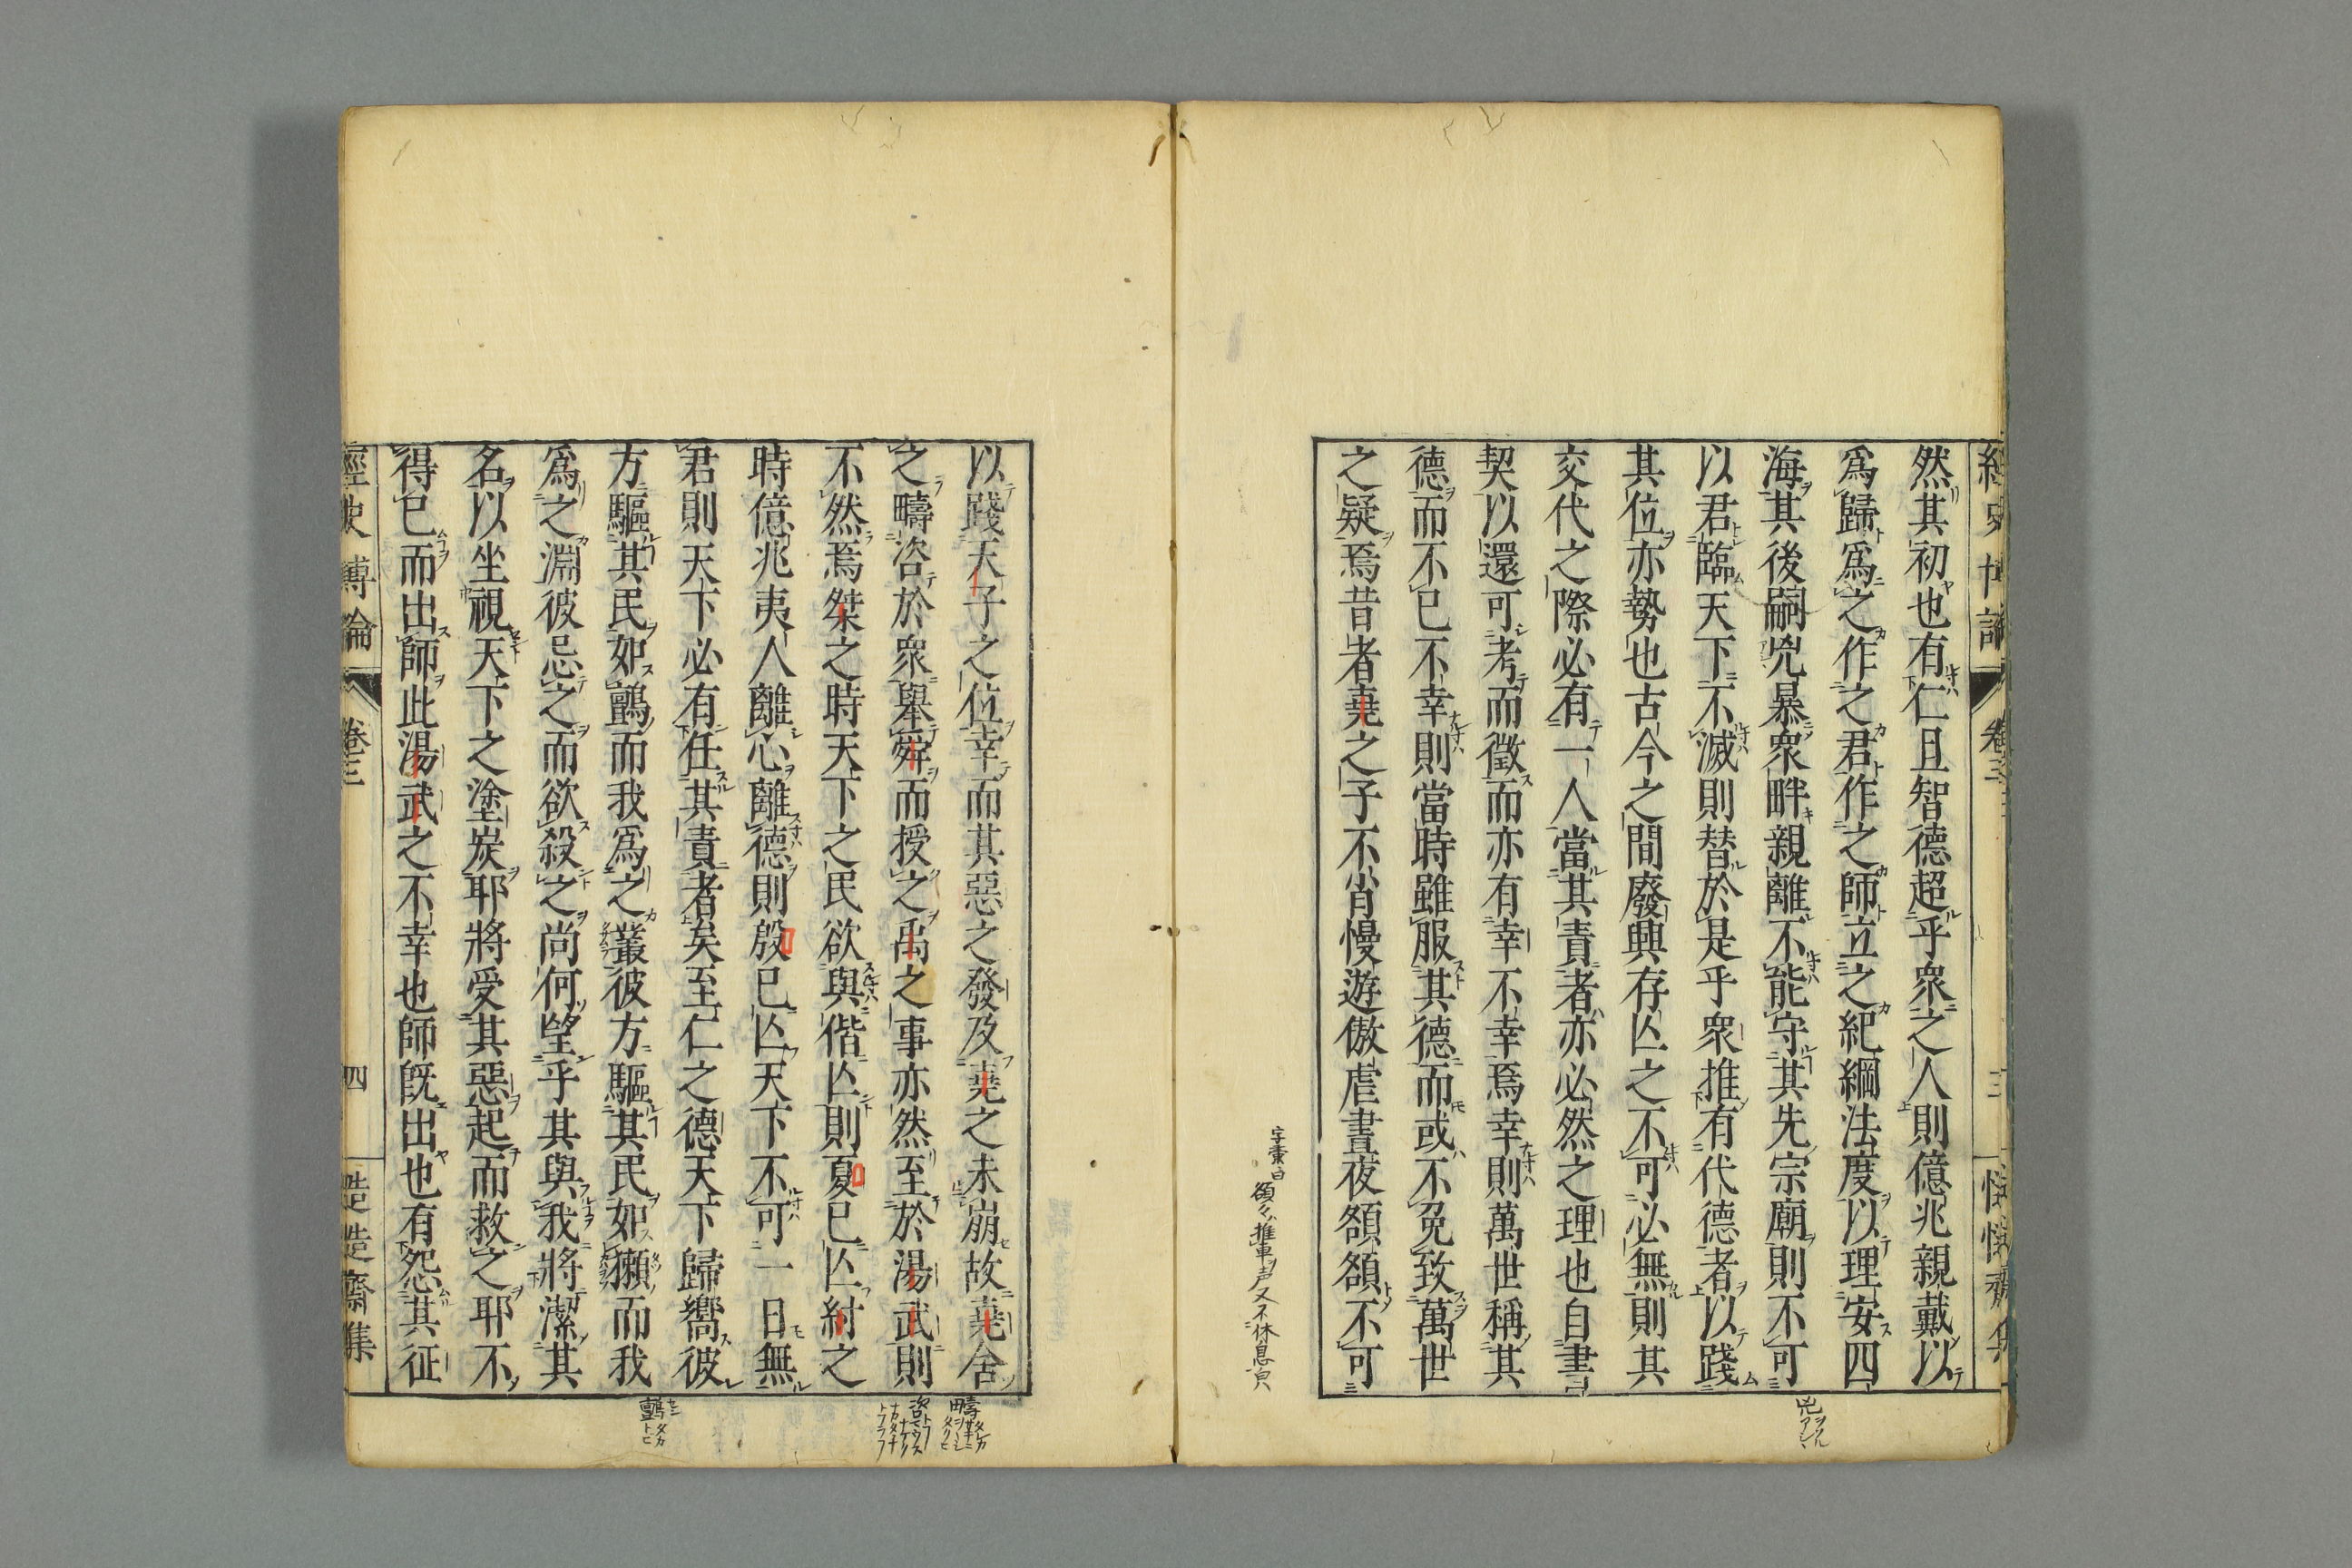 然其初也有仁且智德超乎衆之人則億兆親戴以
爲歸爲之作之君作之師立之紀綱法度以理安四
海其後嗣兇暴衆畔親離不能守其先宗廟則不可
以君臨天下不滅則替於是乎衆推有代德者以踐
其位亦勢也古今之間廢興存亾之不可必無則其
交代之際必有一人當其責者亦必然之理也自書
契以還可考而徵而亦有幸不幸焉幸則萬世稱其
德而不已不幸則當時雖服其德而或不免致萬世
之疑焉昔者堯之子不肖慢遊傲虐晝夜頟頟不可
以踐天子之位幸而其惡之發及堯之未崩故堯舍
之疇咨於衆舉舜而授之禹之事亦然至於湯武則
不然焉桀之時天下之民欲與偕亾則夏已亾紂之
時億兆夷人離心離德則殷已亾天下不可一日無
君則天下必有任其責者矣至仁之德天下歸嚮彼
方驅其民如鸇而我爲之叢彼方驅其民如獺而我
爲之淵彼忌之而欲殺之尚何望乎其與我將潔其
名以坐視天下之塗炭耶將受其惡起而救之耶不
得已而出師此湯武之不幸也師既出也有怨其征
經史博論
卷三
四
慥慥齋集